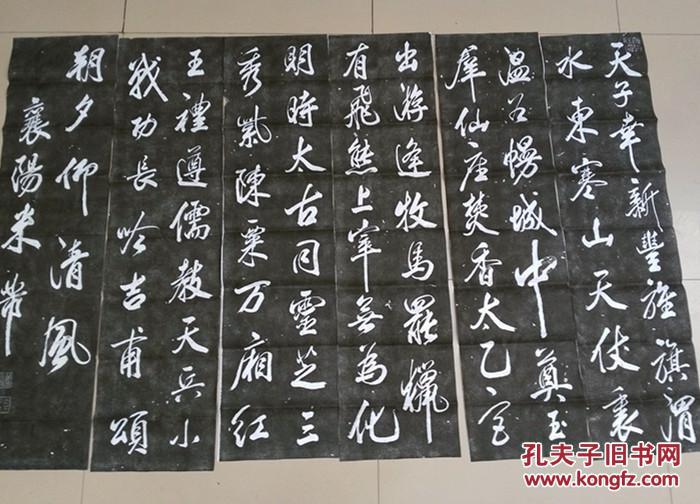 天子幸新豐旌旗渭
水東寒山天仗裏
温谷幔城中奠玉
羣仙座焚香太乙宮
出游逢牧馬罷獵
有飛熊上宰無為化
明時太古同靈芝三
秀紫陳粟万廂紅
王禮遵儒教天兵小
戰功長吟吉甫頌
朝夕仰清風
襄陽米芾
孔夫子旧书网
www.kongfz.com